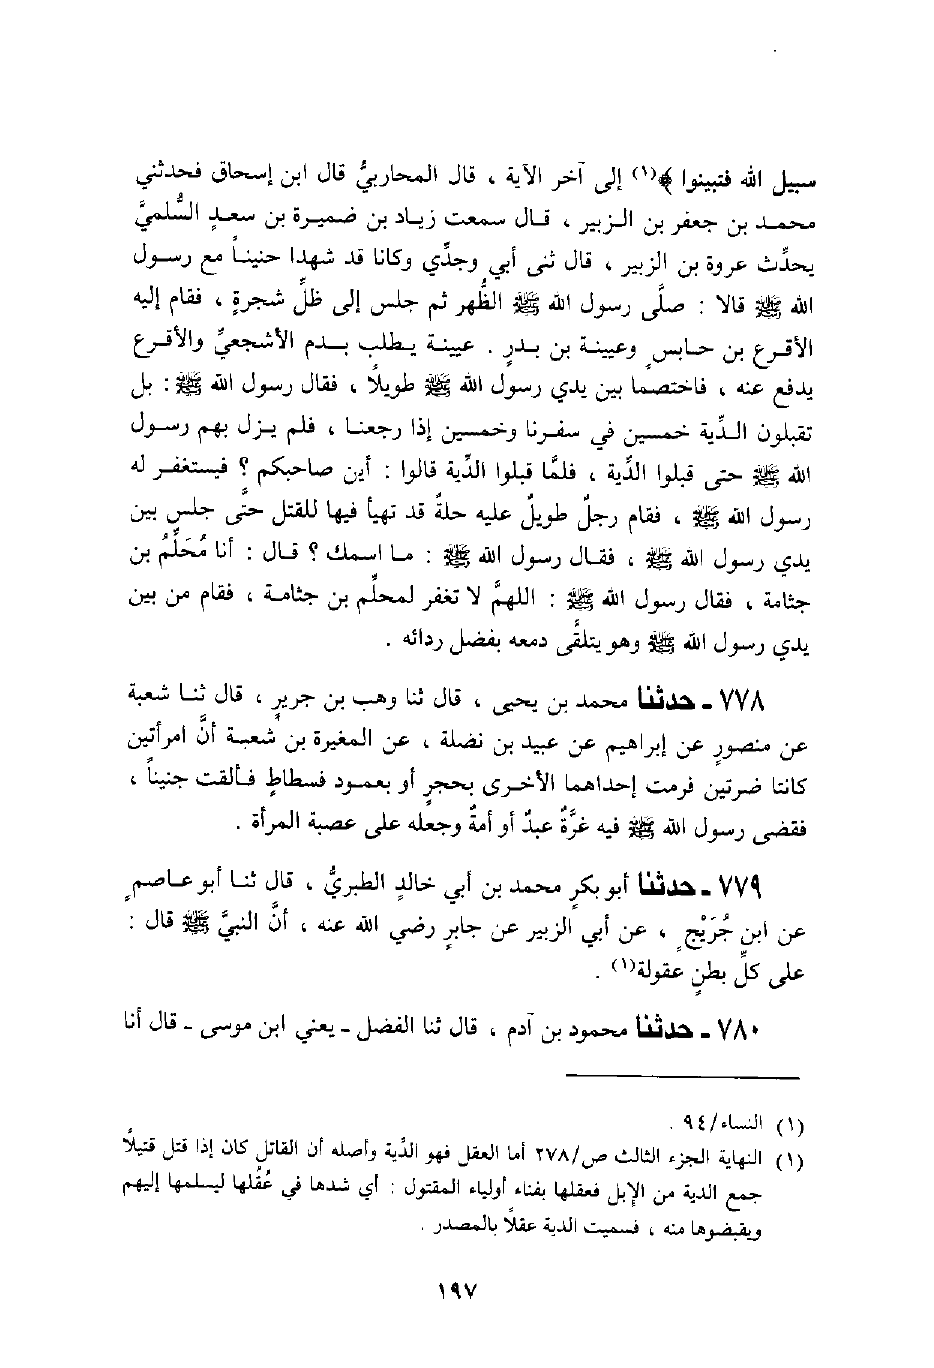 سبيل الله فتبينوا ﴾(١) إلى آخر الآية ، قال المحاربيُّ قال ابن إسحاق فحدثني
محمد بن جعفر بن الزبير ، قال سمعت زياد بن ضميرة بن سعدٍ السُّلميَّ
يحدِّث عروة بن الزبير ، قال ثنى أبي وجدِّي وكانا قد شهدا حنيناً مع رسول
الله ﷺ قالا : صلَّى رسول الله ﷺ الظُّهر ثم جلس إلى ظلِّ شجرةٍ ، فقام إليه
الأقرع بن حابسٍ وعيينة بن بدرٍ . عيينة يطلب بدم الأشجعيِّ والأقرع
يدفع عنه ، فاختصما بين يدي رسول الله ﷺ طويلاً ، فقال رسول الله ﷺ : بل
تقبلون الدِّية خمسين في سفرنا وخمسين إذا رجعنا ، فلم يزل بهم رسول
الله ﷺ حتى قبلوا الدِّية ، فلمَّا قبلوا الدِّية قالوا : أين صاحبكم ؟ فيستغفر له
رسول الله ﷺ ، فقام رجلٌ طويلٌ عليه حلةٌ قد تهيأ فيها للقتل حتَّى جلس بين
يدي رسول الله ﷺ ، فقال رسول الله ﷺ : ما اسمك ؟ قال : أنا مُحَلِّمُ بن
جثامة ، فقال رسول الله ﷺ : اللهمَّ لا تغفر لمحلِّم بن جثامة ، فقام من بين
يدي رسول الله ﷺ وهو يتلقَّى دمعه بفضل ردائه .
٧٧٨ ـ حدثنا محمد بن يحيى ، قال ثنا وهب بن جريرٍ ، قال ثنا شعبة
عن منصورٍ عن إبراهيم عن عبيد بن نضلة ، عن المغيرة بن شعبة أنَّ امرأتين
كانتا ضرتين فرمت إحداهما الأخرى بحجرٍ أو بعمود فسطاطٍ فألقت جنيناً ،
فقضى رسول الله ﷺ فيه غرَّةٌ عبدٌ أو أمةٌ وجعله على عصبة المرأة .
٧٧٩ ـ حدثنا أبو بكرٍ محمد بن أبي خالدٍ الطبريُّ ، قال ثنا أبو عاصمٍ
عن ابن جُرَيْجٍ ، عن أبي الزبير عن جابرٍ رضي الله عنه ، أنَّ النبيَّ ﷺ قال :
على كلِّ بطنٍ عقولة(١) .
٧٨٠ ـ حدثنا محمود بن آدم ، قال ثنا الفضل ـ يعني ابن موسى ـ قال أنا
(١) النساء/٩٤ .
(١) النهاية الجزء الثالث ص/٢٧٨ أما العقل فهو الدِّية وأصله أن القاتل كان إذا قتل قتيلاً
جمع الدية من الإبل فعقلها بفناء أولياء المقتول : أي شدها في عُقُلها ليسلمها إليهم
ويقبضوها منه ، فسميت الدية عقلاً بالمصدر .
١٩٧